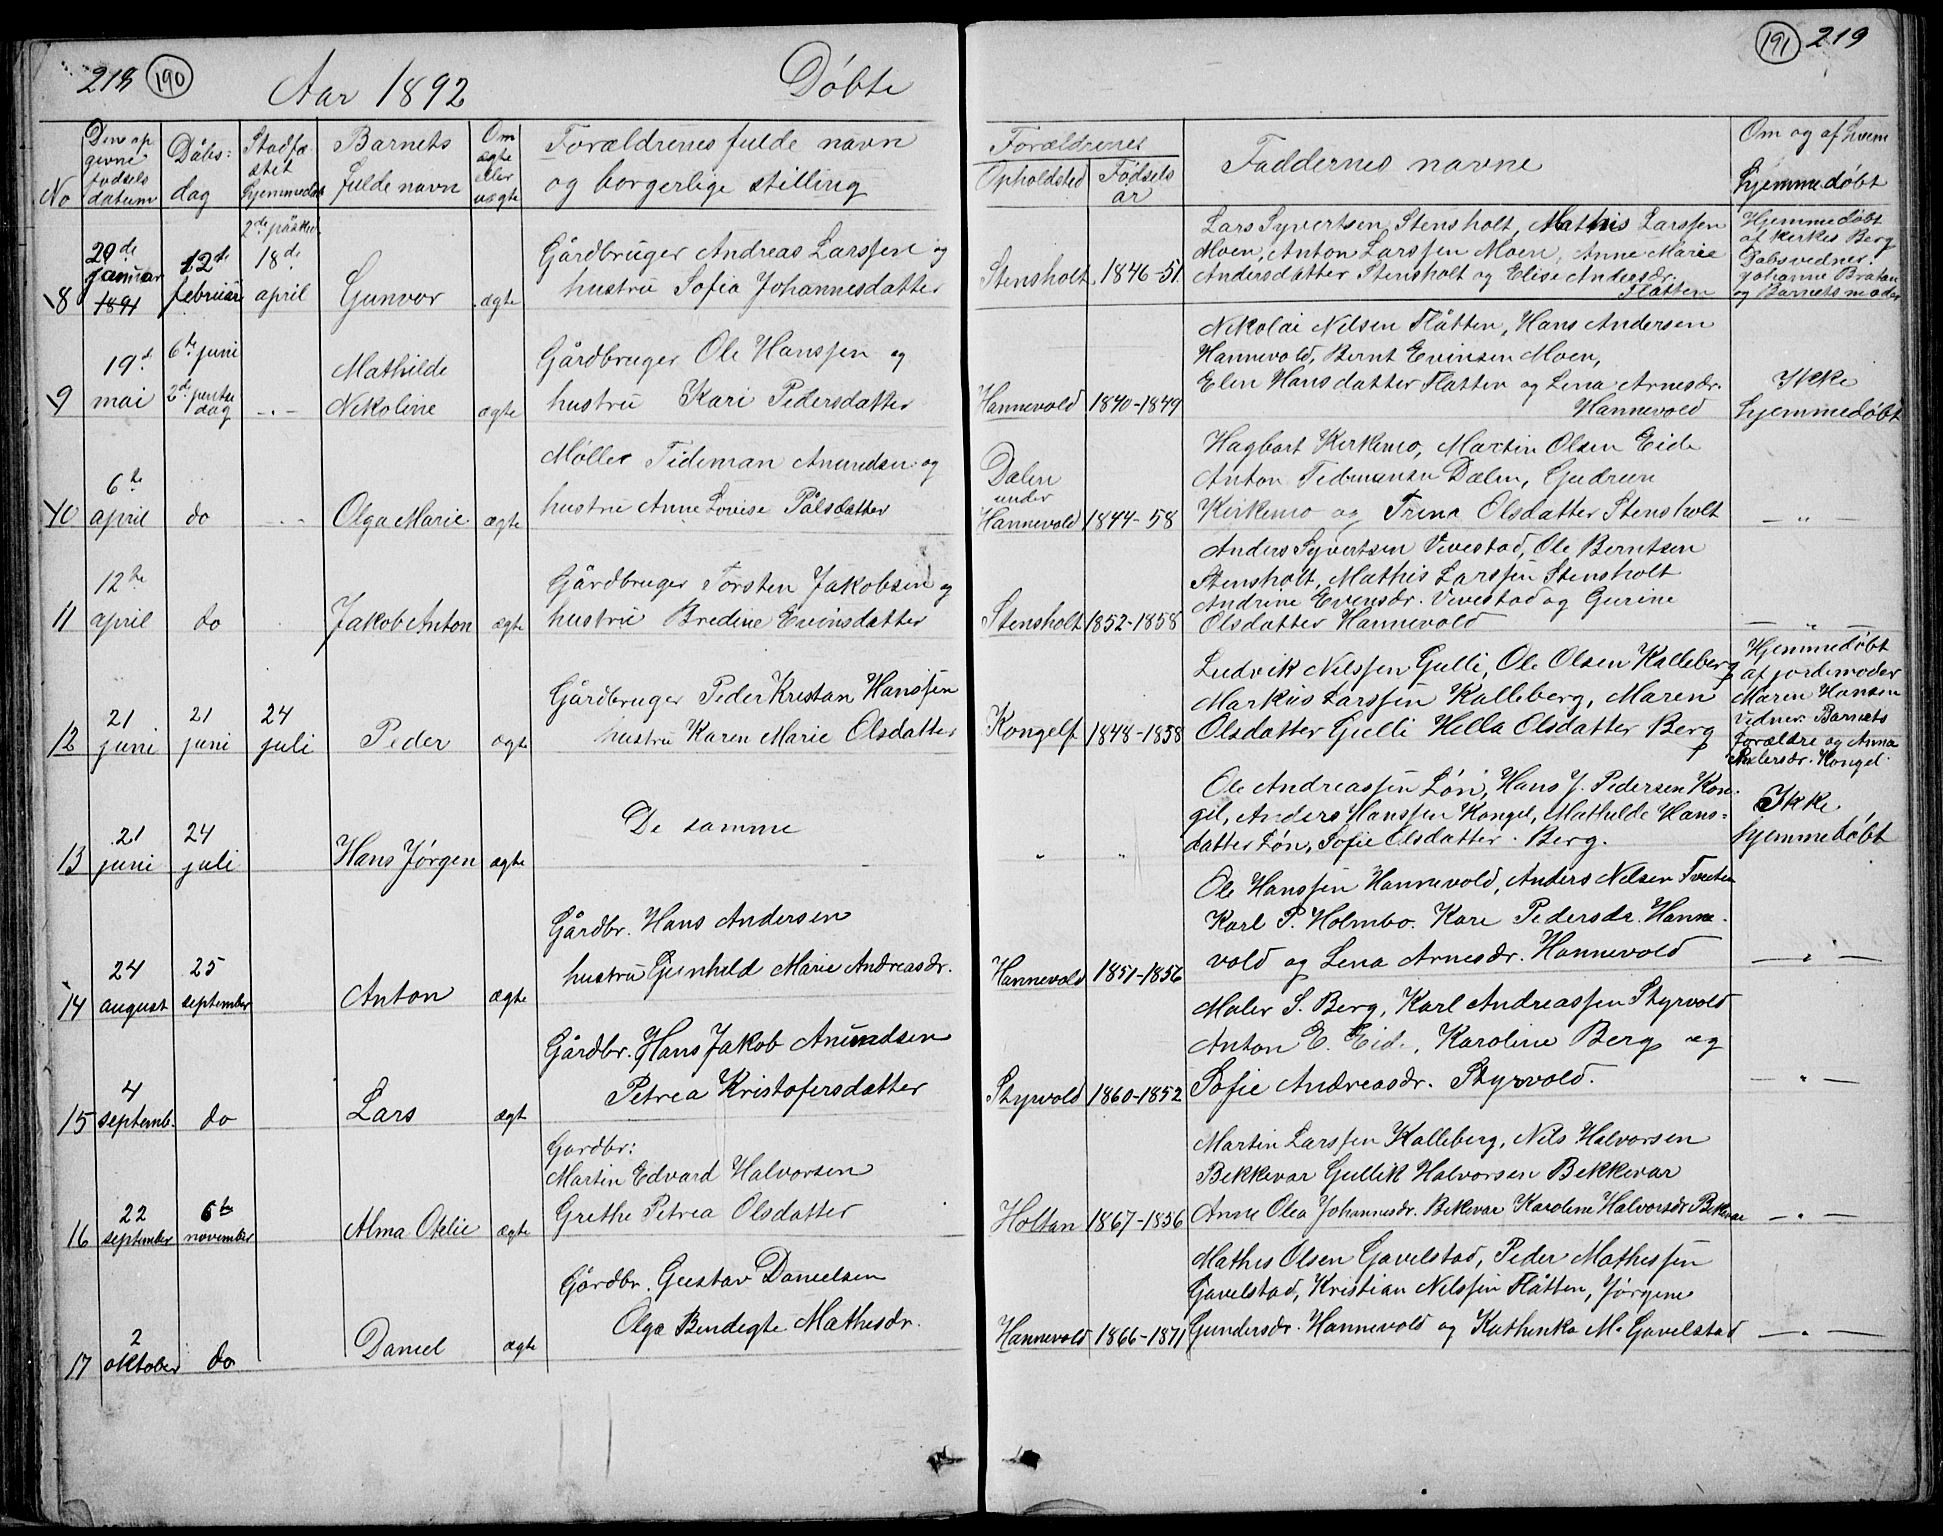 218 190
Aar 1892 Døbte
No
Den opgivne fødselsdatum
Dåbsdag
Stadfæstet hjemmedåb
Barnets fulde navn
Om ægte eller uægte
Forældrenes fulde navn og borgerlige stilling
8 29de januar 12te februar 2de påske. 18de april Gunvor ægte
Gårdbruger Andreas Larssen og
hustru Sofia Johannesdatter
9 19d mai 6te juni 2de pintsedag -.- Mathilde Nikoline ægte
Gårdbruger Ole Hanssen og
hustru Kari Pedersdatter
10 6te april do Olga Marie ægte
Møller Tideman Amundsen og
hustru Anne Lovise Pålsdatter
11 12te april do Jakob Anton ægte
Gårdbruger Torsten Jakobsen og
hustru Bredine Evinsdatter
12 21 juni 21 juni 24 juli Peder ægte
Gårdbruger Peder Kristan Hanssen
hustru Karen Marie Olsdatter
13 21 juni 24 juli Hans Jørgen ægte
De samme
14 24 august 25 september Anton ægte
Gårdbr. Hans Andersen
hustru Gunhild Marie Andreasdr.
15 4 septemb. do Lars ægte
Gårdbr. Hans Jakob Anundsen
Petrea Kristofersdatter
16 22 september 6te november Alma Otelie ægte
Gardbr:
Martin Edvard Halvorsen
Grethe Petrea Olsdatter
17 2 oktober do Daniel ægte
Gårdbr. Gustav Danielsen
Olga Bendegte Mathisdr.
191 219
Forældrenes
Opholdsted Fødselsår
Faddernes navne
Om og af hvem
hjemmedøbt
Stensholt. 1846-51.
Lars Syvertsen Stensholt, Mathis Larssen
Moen, Anton Larssen Moen, Anne Marie
Andersdatter Stensholt og Elise Andersdr.
Flåtten
Hjemmedøbt
af Kirkes. Berg
Dabsvedner.
Johanne Bratan
og Barnets moder
Hannevold 1840-1849
Nikolai Nilsen Flåtten, Hans Andersen
Hannevold, Bernt Evinsen Moen,
Elen Hansdatter Flatten og Lena Arnesdr.
Hannevold
Ikke
hjemmedøbt
Dalen
under
Hannevold 1844-58
Hagbart Kirkemo, Martin Olsen Eide
Anton Tidemansen Dalen, Gudrun
Kirkemo og Trina Olsdatter Stensholt
— " —
Stensholt 1852-1858
Anders Syvertsen Vivestad, Ole Berntsen
Stensholt, Mathis Larssen Stensholt
Andrine Evensdr. Vivestad og Gurine
Olsdatter Hannevold
— " —
Kongelf 1848-1858
Ludvik Nilssen Gulli, Ole Olsen Kalleberg
Markus Larssen Kalleberg, Maren
Olsdatter Gulli Hella Olsdatter Berg
Hjemmedøbt
af jordemoder
Maren Hansen
Vidner. Barnets
forældre og Anna
Pedersdr. Kongel.
" "
Ole Andreassen Løn, Hans J. Pedersen Kongil,
Anders Hanssen Kongel, Mathilde Hansdatter
Løn, Sofie Olsdatter. Berg.
Ikke
hjemmedøbt
Hannevold 1851-1856
Ole Hanssen Hannevold, Anders Nilsen Tveten
Karl P. Holmbo. Kari Pedersdr. Hannevold
og Lena Arnesdr. Hannevold
— " —
Styrvold 1860-1852
Maler S. Berg, Karl Andreassen Styrvold
Anton E. Eide, Karoline Berg og
Sofie Andreasdr. Styrvold.
— " —
Holtan 1867-1856
Martin Larssen Kalleberg, Nils Halvorsen
Bekkevar Gullik Halvorsen Bekkevar
Anne Olea Johannesdr. Bekevar Karoline Halvorsdr Bekevar
— " —
Hannevold 1866-1871
Mathis Olsen Gavelstad, Peder Mathissen
Gavelstad, Kristian Nilssen Flåtten, Jørgine
Gundersdr. Hannevold og Kathinka M. Gavelstad
— " —